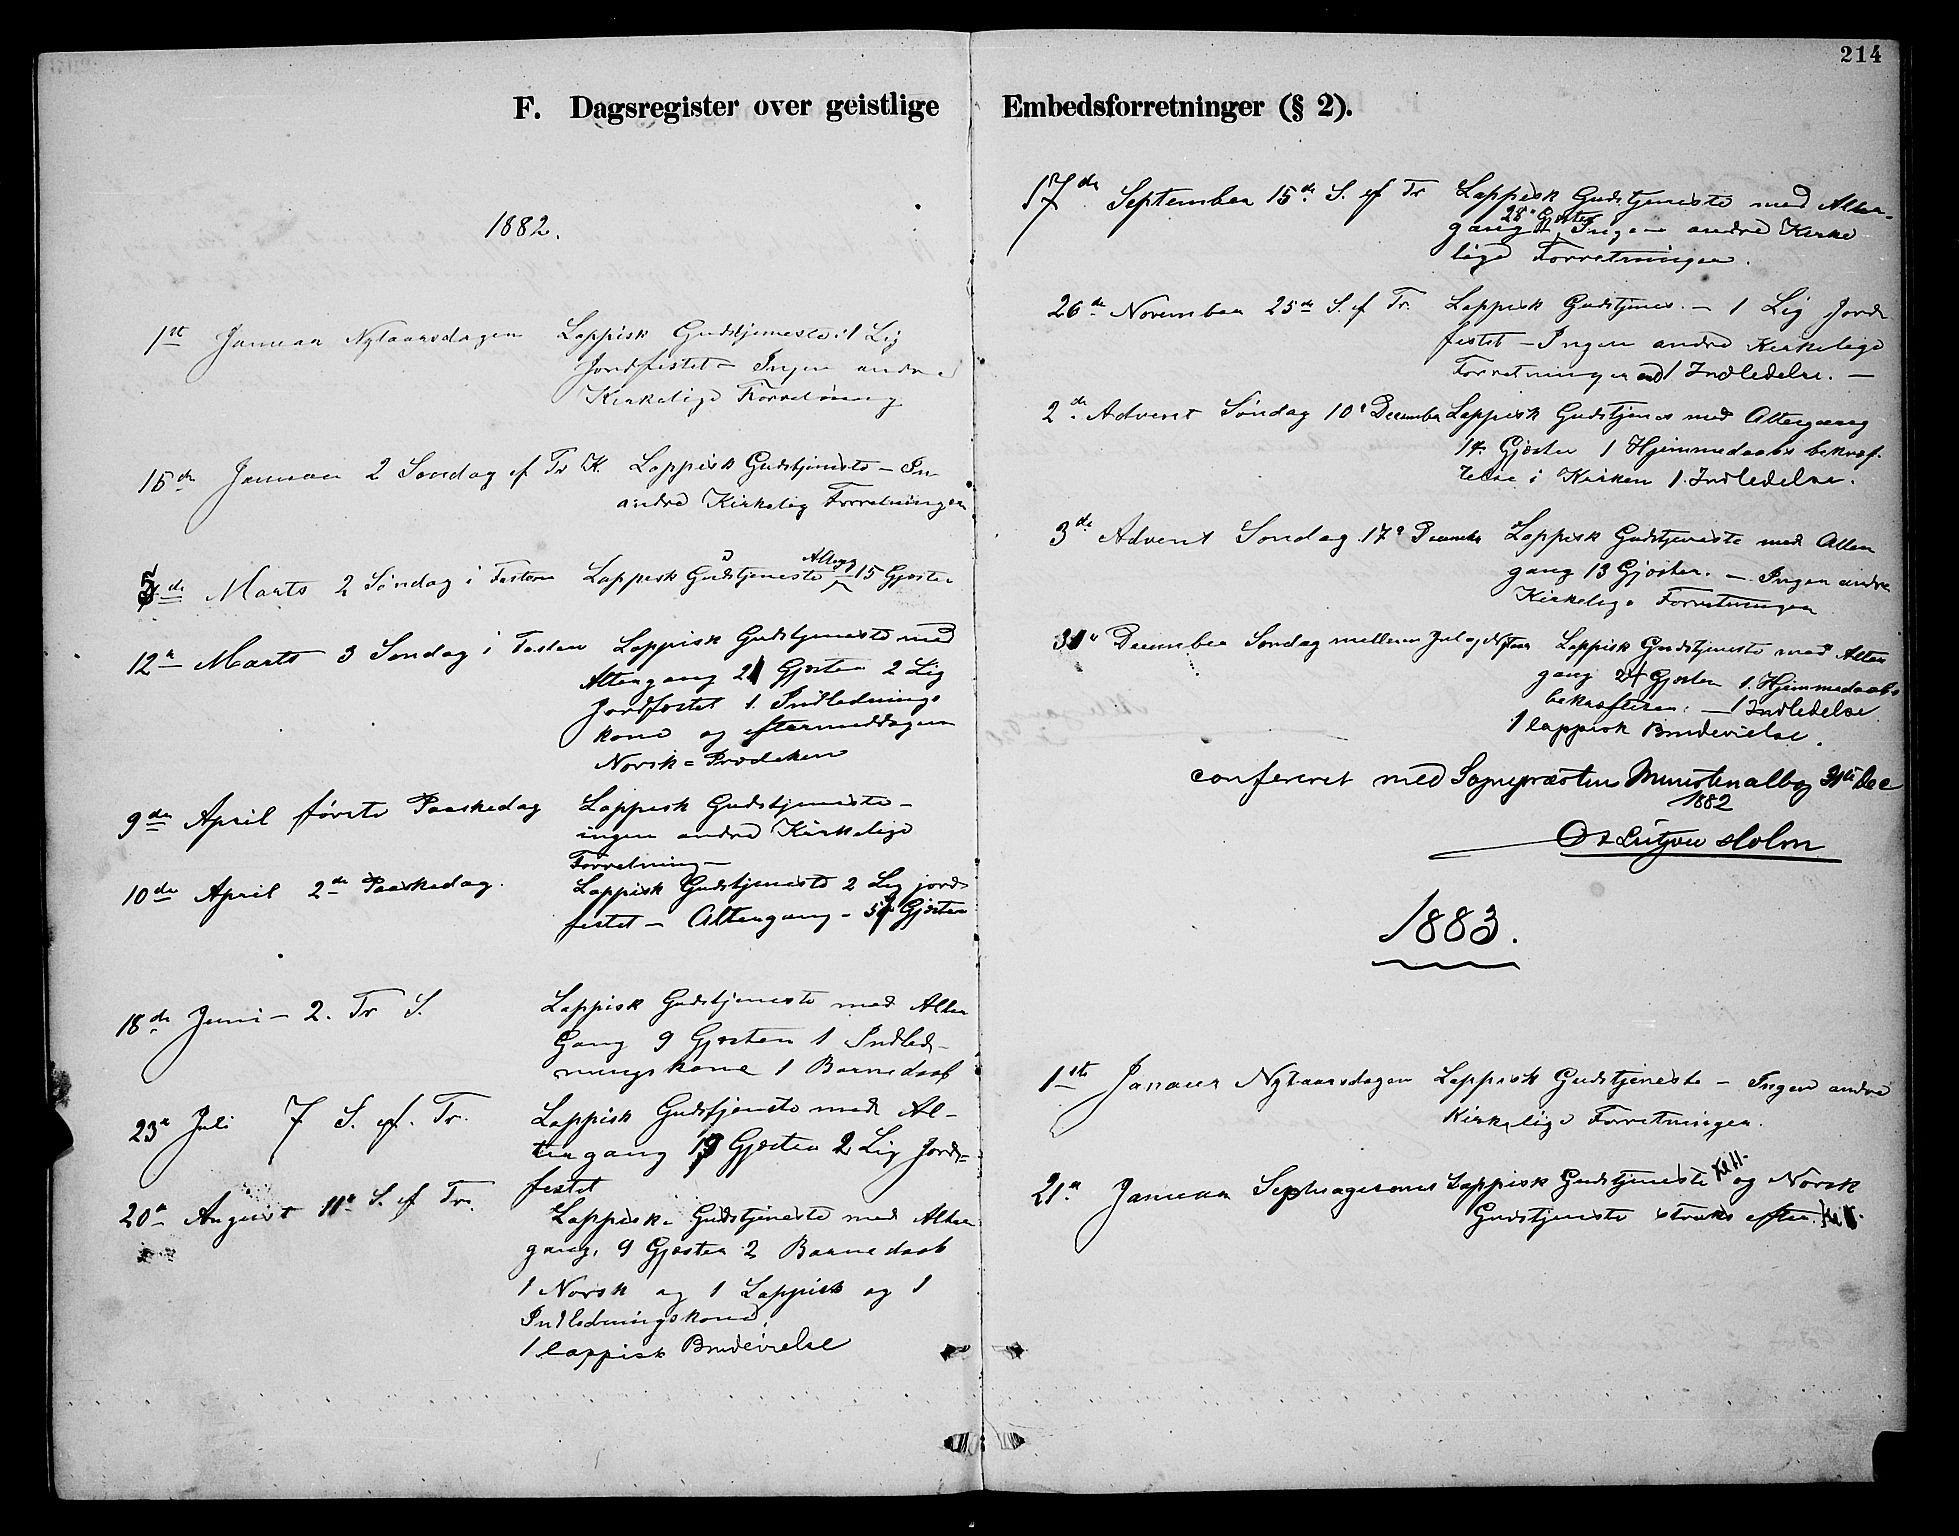 214
F. Dagsregister over geistlige Embedsforretninger (§ 2).
1882.
1st Januar Nytaarsdagen Lappisk Gudstjeneste: 1 Lig
Jordfestet – Ingen andre
Kirkelige Forretning
15de Januar 2 Søndag ef Tr K. Lappisk Gudstjeneste – In
andre Kirkelig Forretninger
5de Marts 2 Søndag i Fasten Lappisk Gudstjeneste Alterg 15 Gjester
12te Marts 3 Søndag i Fasten Lappisk Gudstjeneste med
Altergang 21 Gjester 2 Lig
Jordfestet 1. Indlednings
kone og eftermiddagen
Norsk = Prædiken
9de April første Paaskedag Lappisk Gudstjeneste –
ingen andre Kirkelige
Forretning –
10de April 2de Paaskedag. Lappisk Gudstjeneste 2 Lig jord
festet – Altergang – Gjester
18de Juni – 2. Tr S. Lappisk Gudstjeneste med Alter
Gang 9 Gjester 1 Indled-
ningskone 1 Barnedaab
23de Juli 7 S. ef. Tr. Lappisk Gudstjeneste med Al-
tergang 19 Gjester 2 Lig Jord=
festet
20de August 11te S. ef Tr. Lappisk Gudstjeneste med Alter
gang, 9 Gjester 2 Barnedaab
1 Norsk og 1 Lappisk og 1
Indledningskone,
1 lappisk Brudevielse
17de September 15de S. ef Tr Lappisk Gudstjeneste med Alter-
gang 28 Gjester Ingen andre Kirke
lige Forretninger.
26de November 25de S. ef Tr. Lappisk Gudstjenes. – 1 Lig Jord
festet – Ingen andre Kirkelige
Forretninger end 1 Indledelse. –
2de Advent Søndag 10de December Lappisk Gudstjenes med Altergang
14 Gjester 1 Hjemmedaabs bekræf-
telse i Kirken 1. Indledelse.
3de Advent Søndag 17de December Lappisk Gudstjeneste med Alter
gang 13 Gjester. – Ingen andre
Kirkelige Forretninger
31te December Søndag mellem Jul og Nytaar Lappisk Gudstjeneste med Alter
gang 24 Gjester 1. Hjemmedaabs
bekræftelse. – 1 Indledelse
1 lappisk Brudevielse.
confereret med Sognepræstens Ministerialbog 31te Dec
1882
Holm
1883.
1ste Januar Nytaarsdagen Lappisk Gudstjeneste – Ingen andre
Kirkelige Forretninger.
21de Januar Septuagesima Lappisk Gudstjeneste Kl 11. og Norsk
Gudstjeneste straks efter.